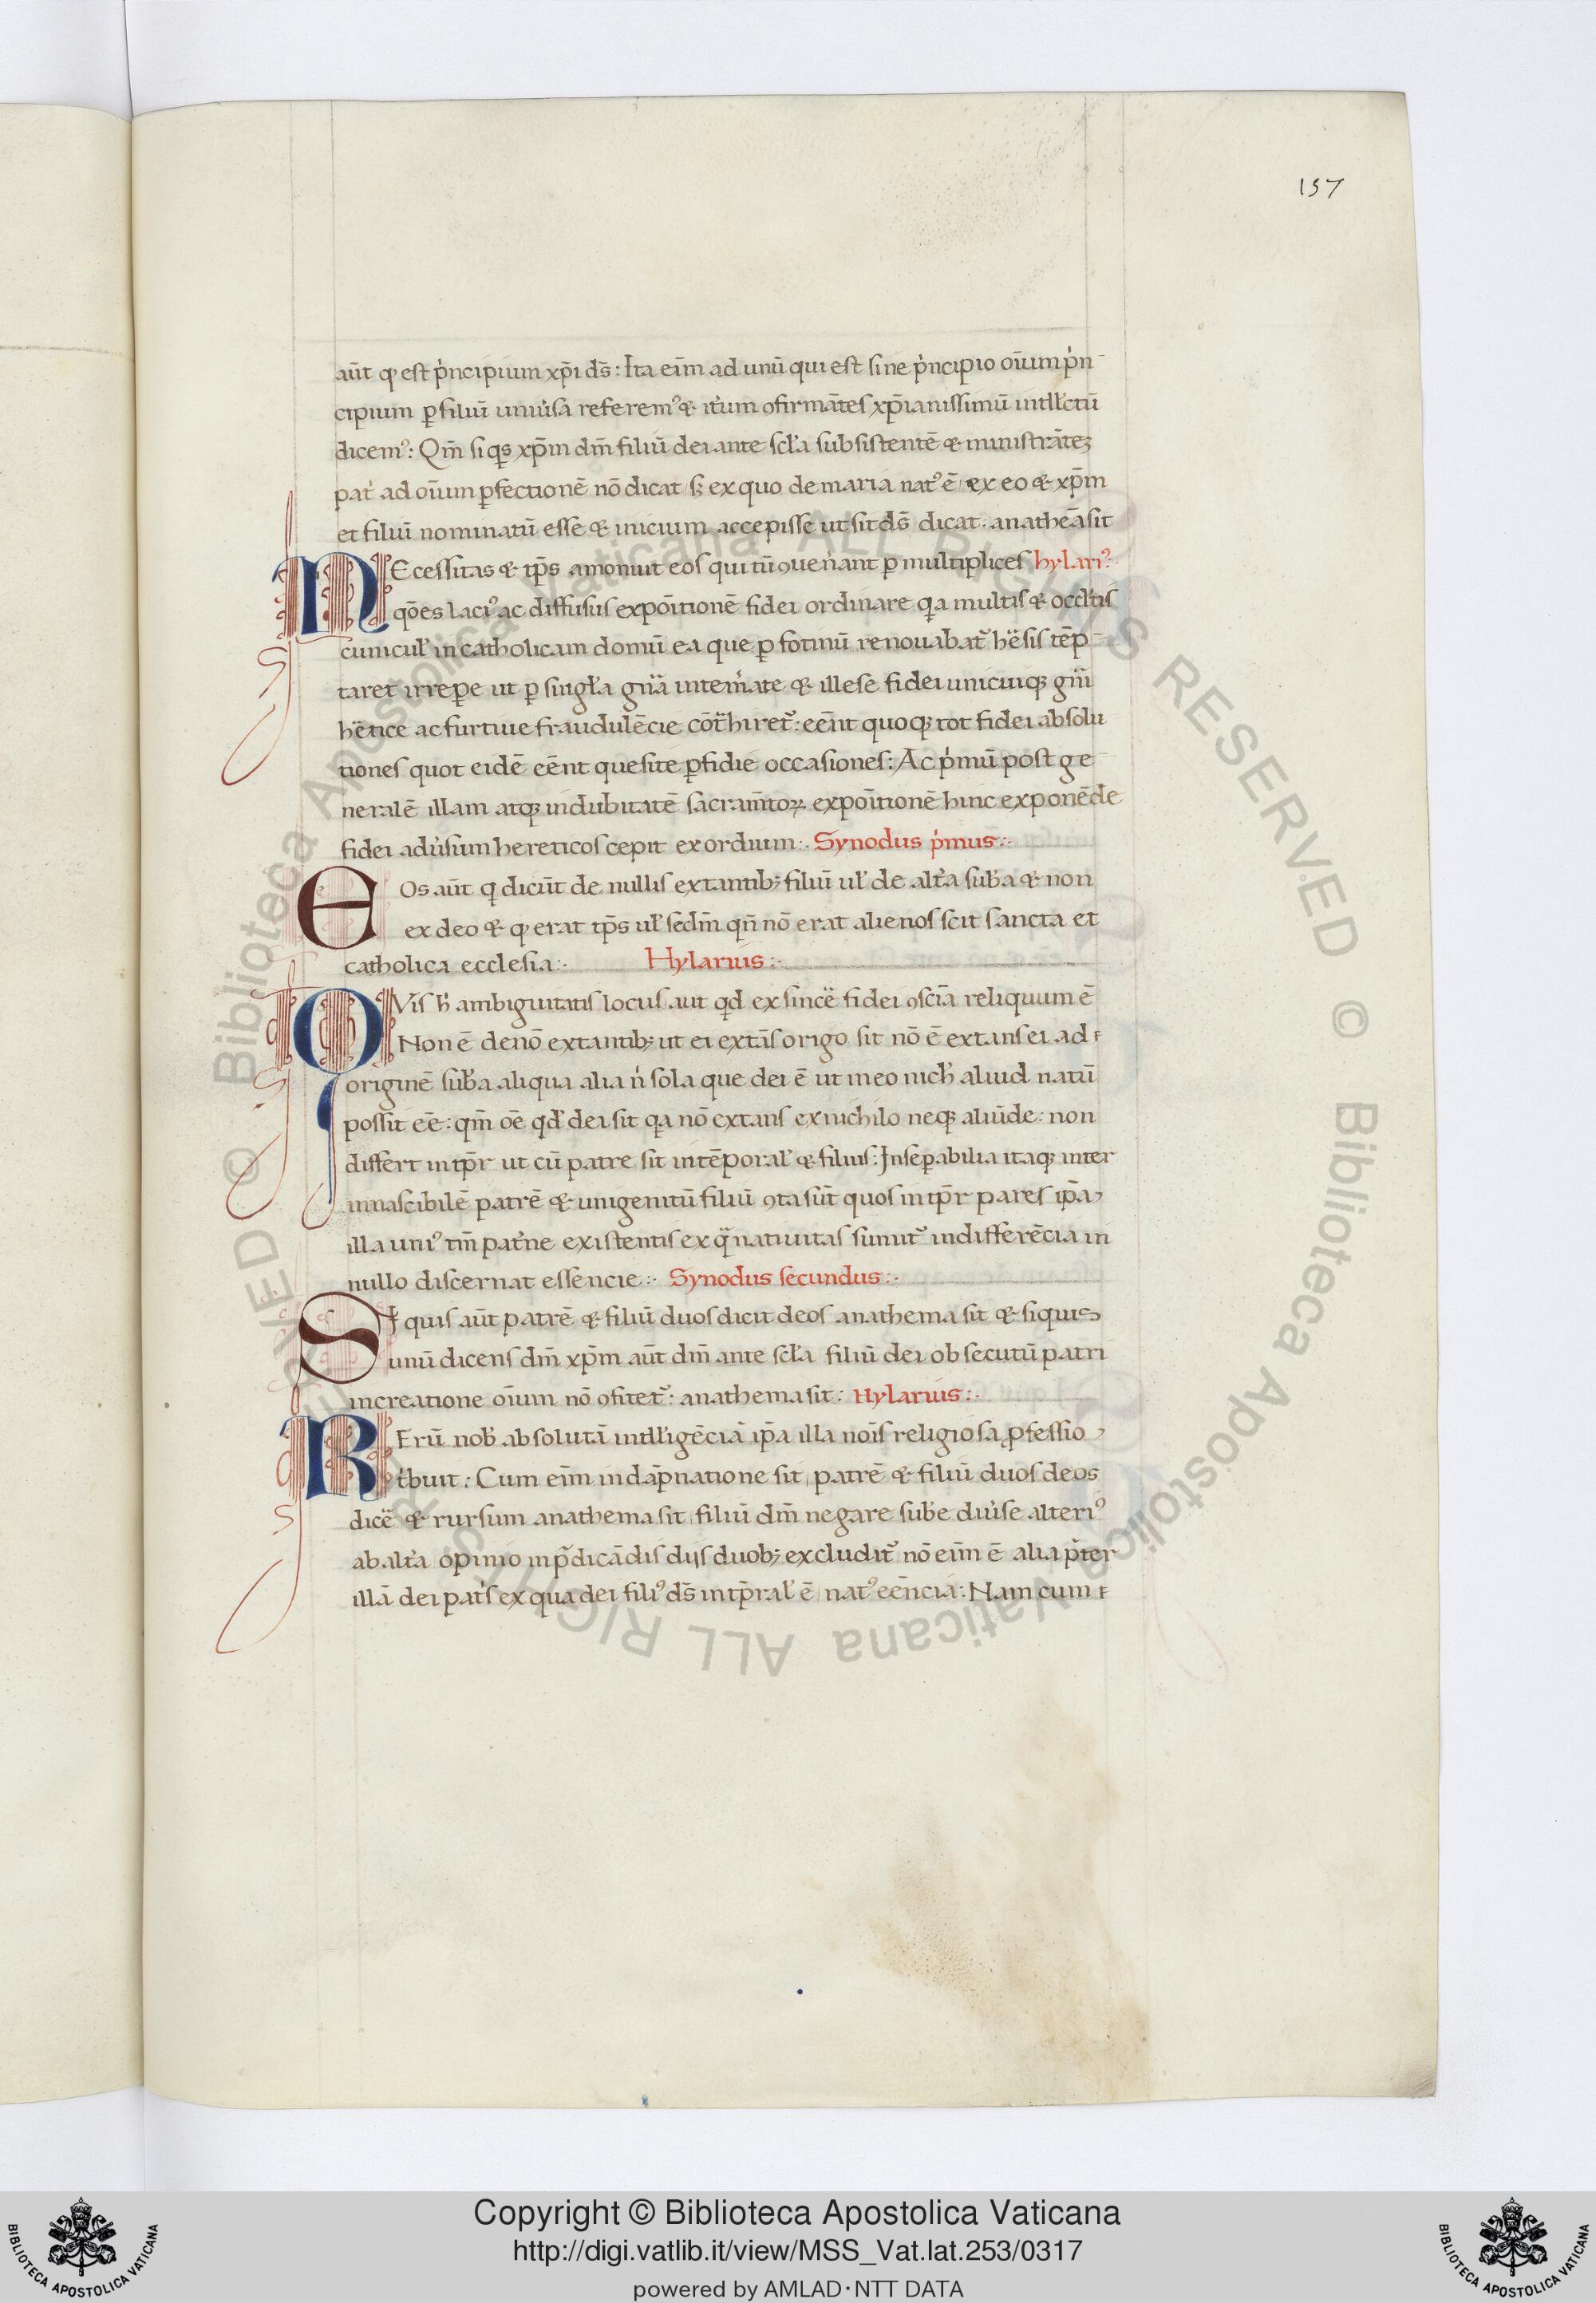 157
aūt qͥ est pͥncipium xp̄i ds̄: Ita eīm ad unū qui est sine pͥncipio oīum pͥn-
cipium ꝑ filiū uniũsa referemꝰ & itͥum ꝯfirmātes xp̄ianissimū intll̄ctū
dicemꝰ: Qm̄ si qͥs xp̄m dm̄ filiū dei ante scl̄a subsistentē & ministrātē
patͥ ad oīum ꝑfectionē nō dicat sꝫ ex quo de maria natꝰ ē ex eo & xp̄m
et filiū nominatū esse & inicium accepisse ut sit ds̄ dicat. anatheā sit
NEcessitas & tp̄s amonuit eos qui tū ꝯuenͥant ꝑ multiplices hylariꝰ
qōes laciꝰ ac diffusus expoītionē fidei ordinare qͣa multis & occl̄tis
cunicul̄ in catholicam domū ea que ꝑ fotinū renouabat᷑ hēsis tēp-
taret irrepere ut ꝑ singl̄a gn̄a intemͥate & illese fidei unicuiqꝫ gn̄i
hētice ac furtiue fraudulēcie cōtͣhiret᷑: eēnt quoqꝫ tot fidei absolu
tiones quot eidē eēnt quesite ꝑfidie occasiones: Ac pͥmū post ge
neralē illam atqꝫ indubitatē sacram̄toꝝ expoītionē hinc exponēde
fidei adũsum hereticos cepit exordium:. Synodus pͥmus:.
EOs aūt qͥ dicūt de nullis extantibꝫ filiū ul̄ de altͥa sub̄a & non
ex deo & qͥ erat tp̄s ul̄ sedm̄ qn̄ nō erat alienos scit sancta et
catholica ecclesia:. Hylarius:.
QVis h̄ ambiguitatis locus. aut qͥd ex sincē fidei ꝯscīa reliquum ē
Non ē denō extantibꝫ ut ei extās origo sit nō ē extans ei ad
originē sub̄a aliqua alia nͥ sola que dei ē ut in eo nich̄ aliud natū
possit eē: qm̄ oē qͥd dei sit qͣa nō extans ex nichilo neqꝫ aliūde: non
differt intp̄r ut cū patre sit intēporal̄ & filius: Inseꝑabilia itaqꝫ inter
innascibilē patrē & unigenitū filiū ꝯta sūt quos intp̄r pares ip̄a,
illa uniꝰ tm̄ patͥne existentis ex qͣ nativitas sumit᷑ indifferēcia in
nullo discernat essencie:. Synodus secundus:.
SI quis aūt patrē & filiū duos dicit deos anathema sit & siquis
unū dicens dm̄ xp̄m aūt dm̄ ante scl̄a filiū dei obsecutū patri
in creatione oīum nō ꝯfitet᷑: anathema sit: Hylarius:.
RErū nob̄ absolutā intll̄igēciā ip̄a illa noīs religiosa ꝓfessio
tͥbuit: Cum eīm in dāpnatione sit patrē & filiū duos deos
dicē & rursum anathema sit filiū dm̄ negare sub̄e diũse alteriꝰ
ab altͥa opinio in p̄dicādis dijs duobꝫ excludit᷑ nō eīm ē alia p̄ter
illā dei patͥs ex qua dei filiꝰ ds̄ intp̄ral̄ ē natꝰ eēncia: Nam cum
© Biblioteca Apostolica Vaticana ALL RIGHTS RESERVED © Biblioteca Apostolica Vaticana ALL RIGHTS RESERVED
Copyright © Biblioteca Apostolica Vaticana
http://digi.vatlib.it/view/MSS_Vat.lat.253/0317
powered by AMLAD·NTT DATA
BIBLIOTECA APOSTOLICA VATICANA
BIBLIOTECA APOSTOLICA VATICANA